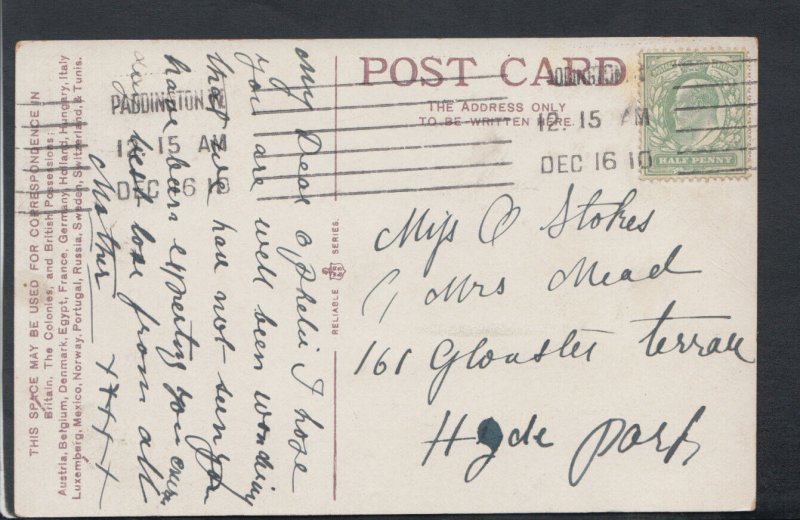 THIS SPACE MAY BE USED FOR CORRESPONDENCE IN
Britain, The Colonies, and British Possessions;
Austria, Belgium, Denmark, Egypt, France, Germany, Holland, Hungary, Italy
Luxemberg, Mexico, Norway, Portugal, Russia, Sweden, Switzerland, & Tunis.
PADDINGTON.W
12. 15 AM
DEC 16 10
My Dear Ophelia I hope
you are well been wondring
that we had not seen you
have been expecting you every
day best love from all
Mother
x x x x
RELIABLE SERIES.
POST CARD
THE ADDRESS ONLY
TO BE WRITTEN HERE.
12. 15 AM
DEC 16 10
HALF PENNY
Miss O Stokes
C/ Mrs Mead
161 Gloaster terrace
Hyde Park